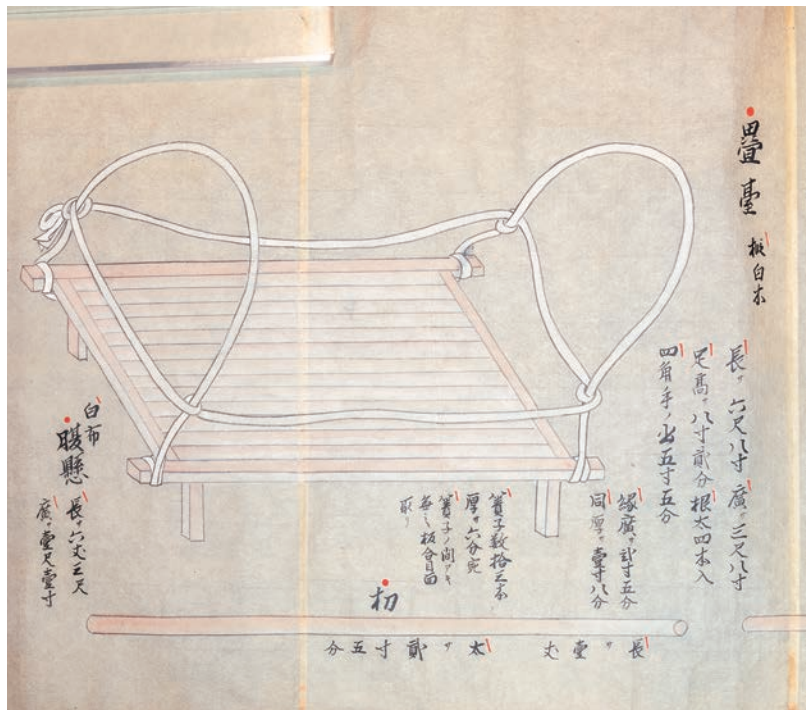 疊臺 板白木
長サ六尺八寸 廣サ三尺八寸
足高サ八寸貳分 根太四本入
四角手ノ出五寸五分
縁廣サ貳寸五分
同厚サ壹寸八分
簀子数拾三本
厚サ六分宛
簀子ノ間アキ
毎之板合目面
取リ
白布
腰懸
長サ六丈三尺
廣サ壹尺壹寸
朸
長サ壹丈 太サ貳寸五分